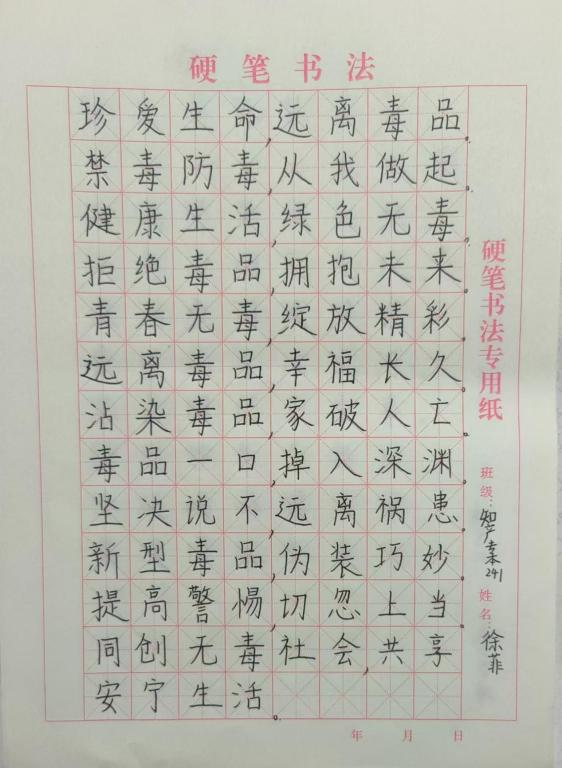 硬笔书法
珍爱生命,远离毒品。
禁毒防毒,从我做起。
健康生活,绿色无毒。
拒绝毒品,拥抱未来。
青春无毒,绽放精彩。
远离毒品,幸福长久。
沾染毒品,家破人亡。
毒品一口,掉入深渊。
坚决说不,远离祸患。
新型毒品,伪装巧妙。
提高警惕,切忽上当。
同创无毒社会,共享
安宁生活。
硬笔书法专用纸
班级:知产专本241
姓名:徐菲
年 月 日